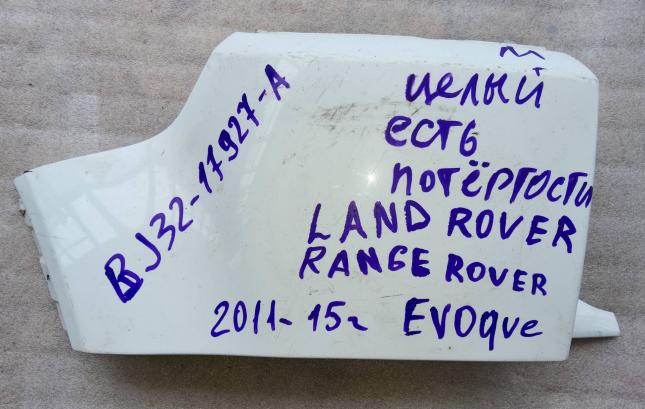 BJ32-17927-A
целый
есть
потёртости
LAND ROVER
RANGE ROVER
2011-15г EVOque